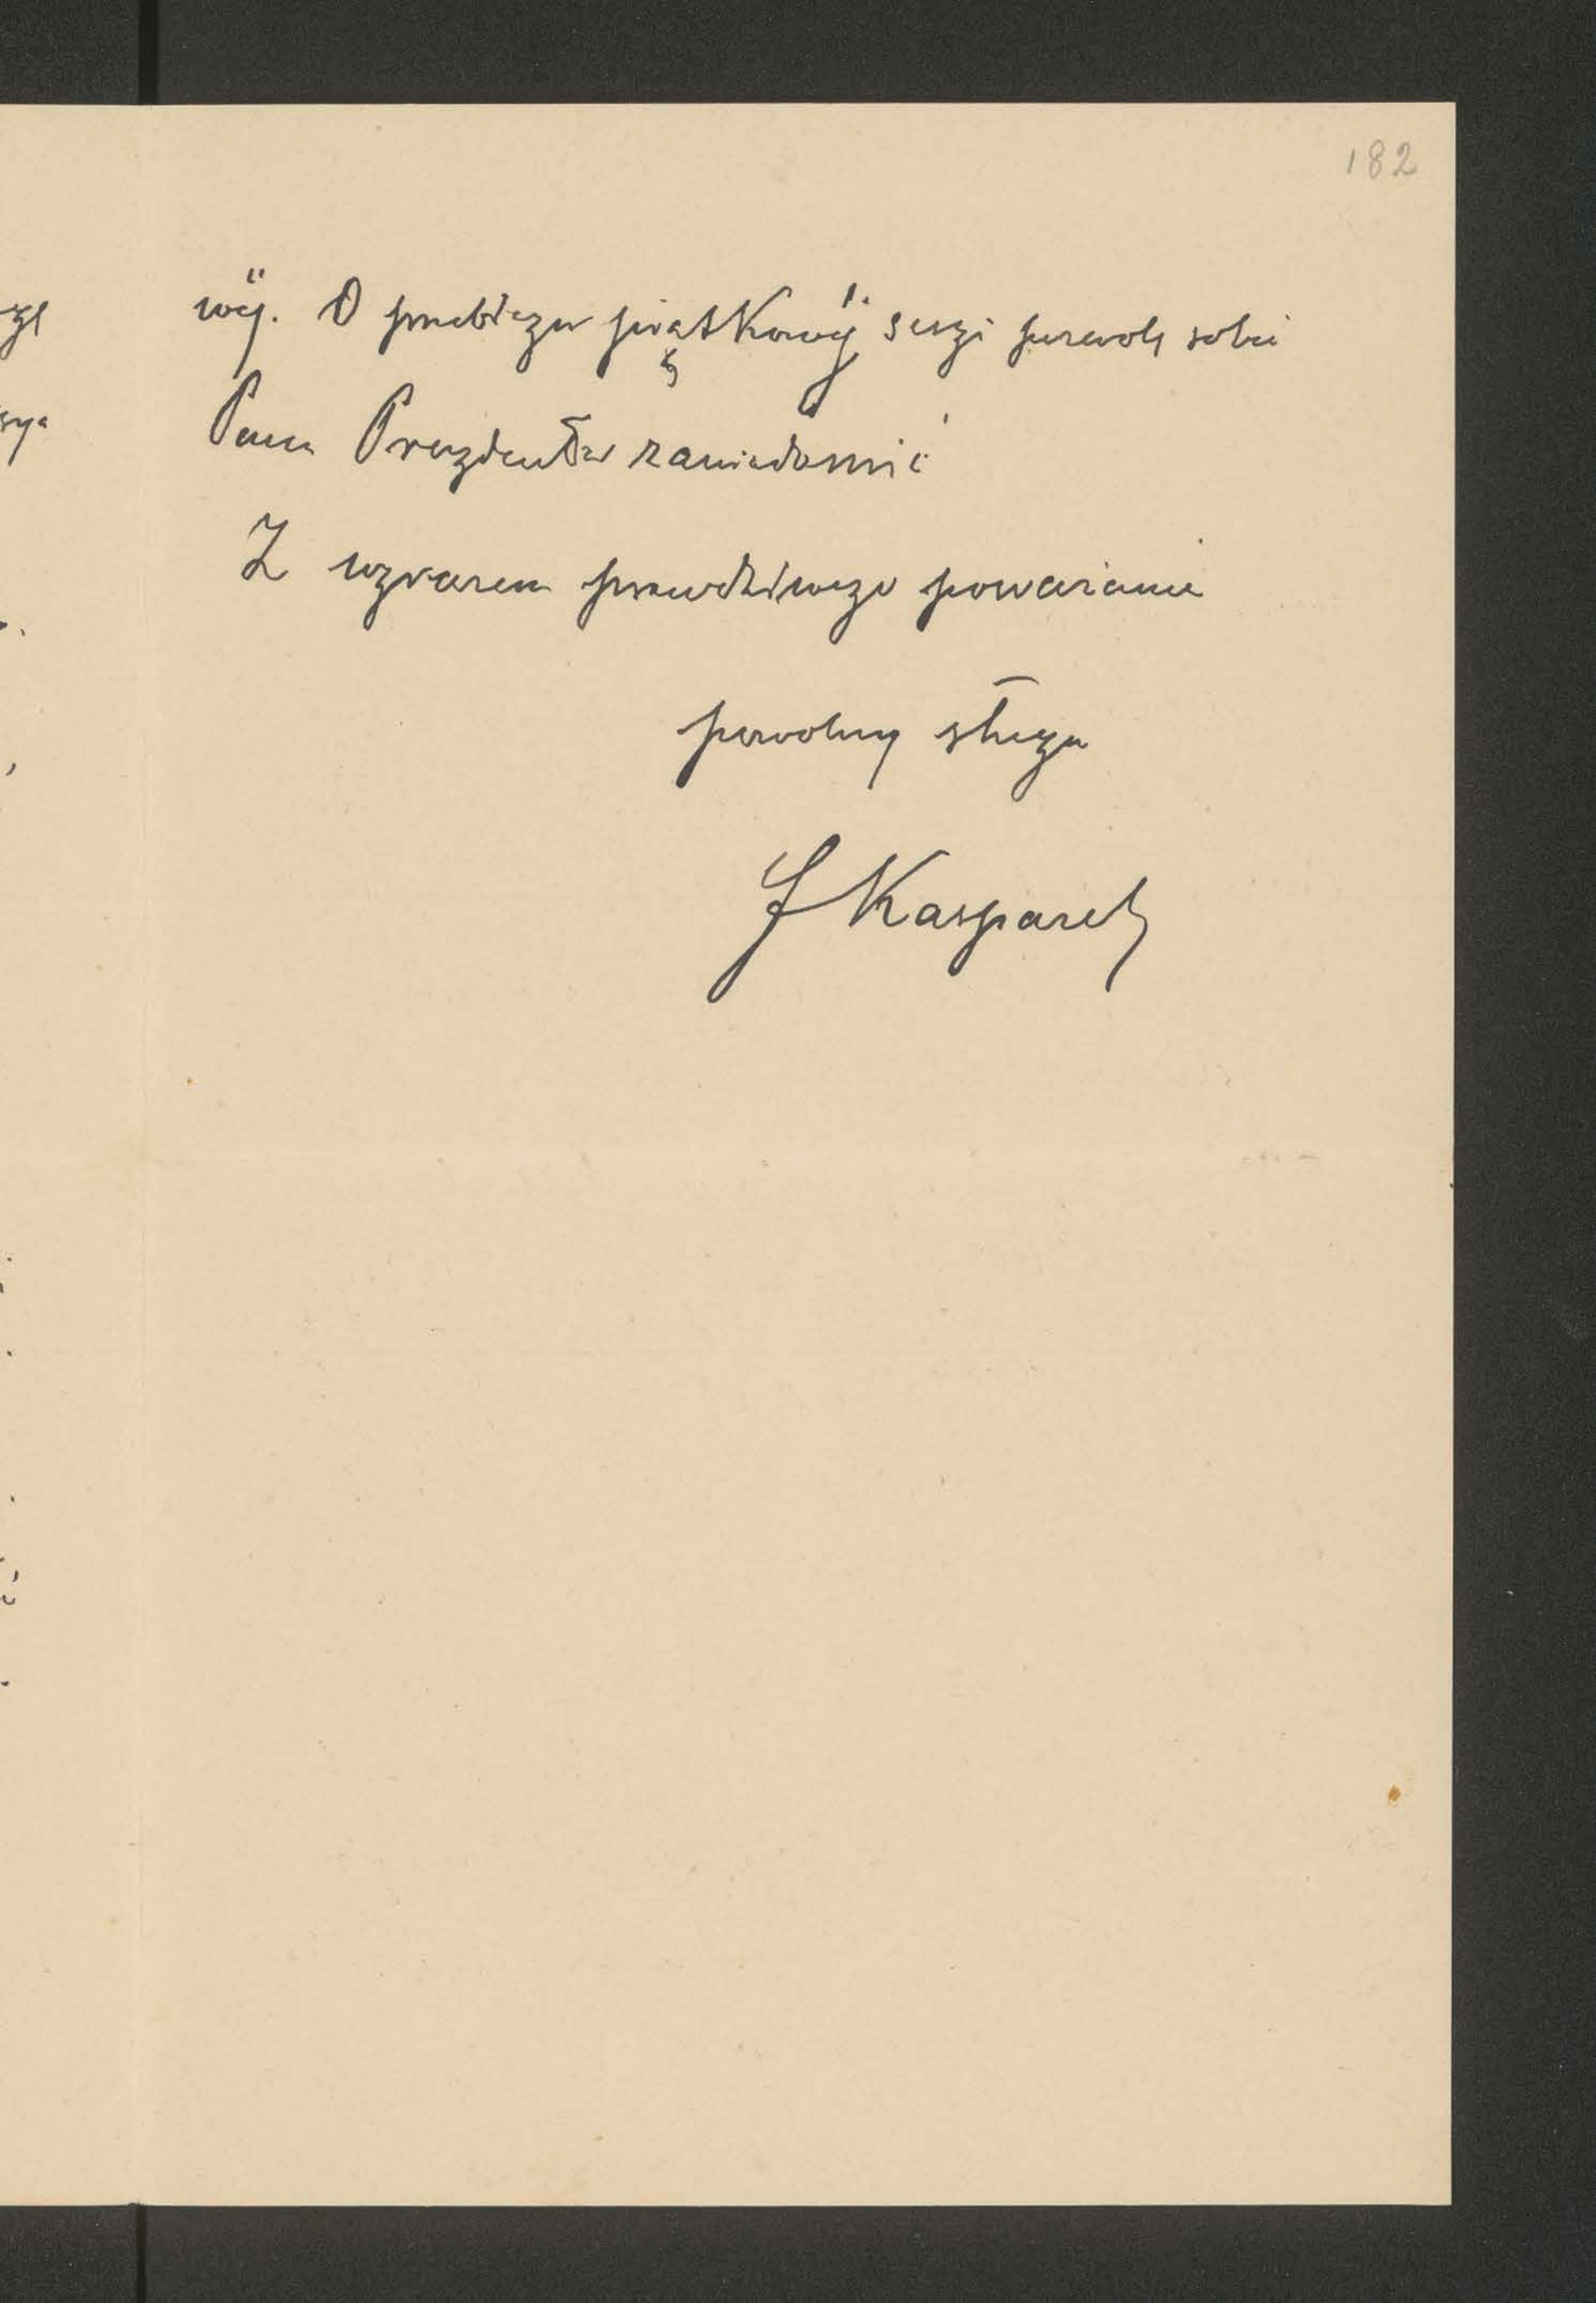 182
wéj. O przebiegu piątkowéj sesyi pozwolę sobie
Pana Prezydenta zawiadomić
Z wyrazem prawdziwego poważania
powolny sługa
F Kasparek